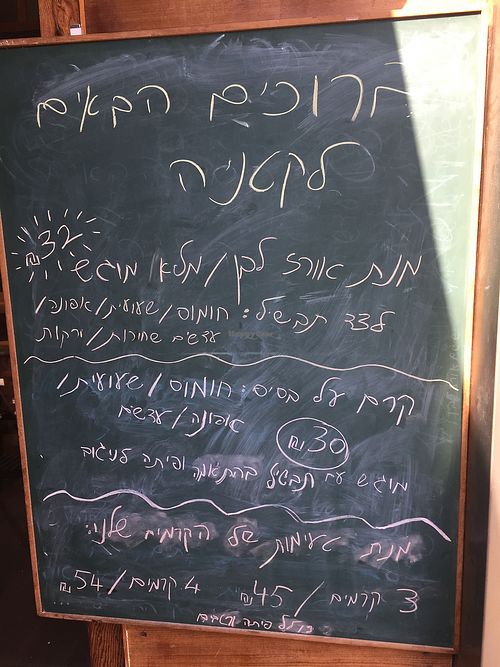 ברוכים הבאים
לקטניה
מנת אורז לבן/מלא מוגש ₪32
לצד תבשיל: חומוס/שעועית/אפונה/
עדשים שחורות/ירקות
קרם על בסיס: חומוס/שעועית/
אפונה/עדשים
₪30
מוגש עם תבשיל בהתאמה ופיתה לניגוב
מנת טעימות של הקרמים שלנו:
3 קרמים/₪45 4 קרמים/₪54
כולל פיתה